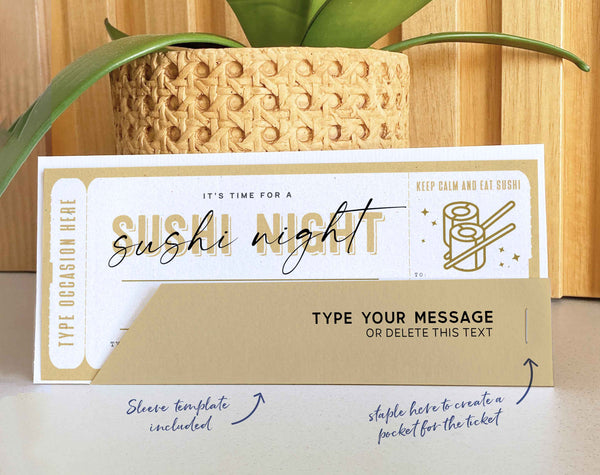 IT'S TIME FOR A
SUSHI NIGHT
sushi night
TYPE OCCASION HERE
KEEP CALM AND EAT SUSHI
TO:
TYPE YOUR MESSAGE
OR DELETE THIS TEXT
Sleeve template
included
staple here to create a
pocket for the ticket